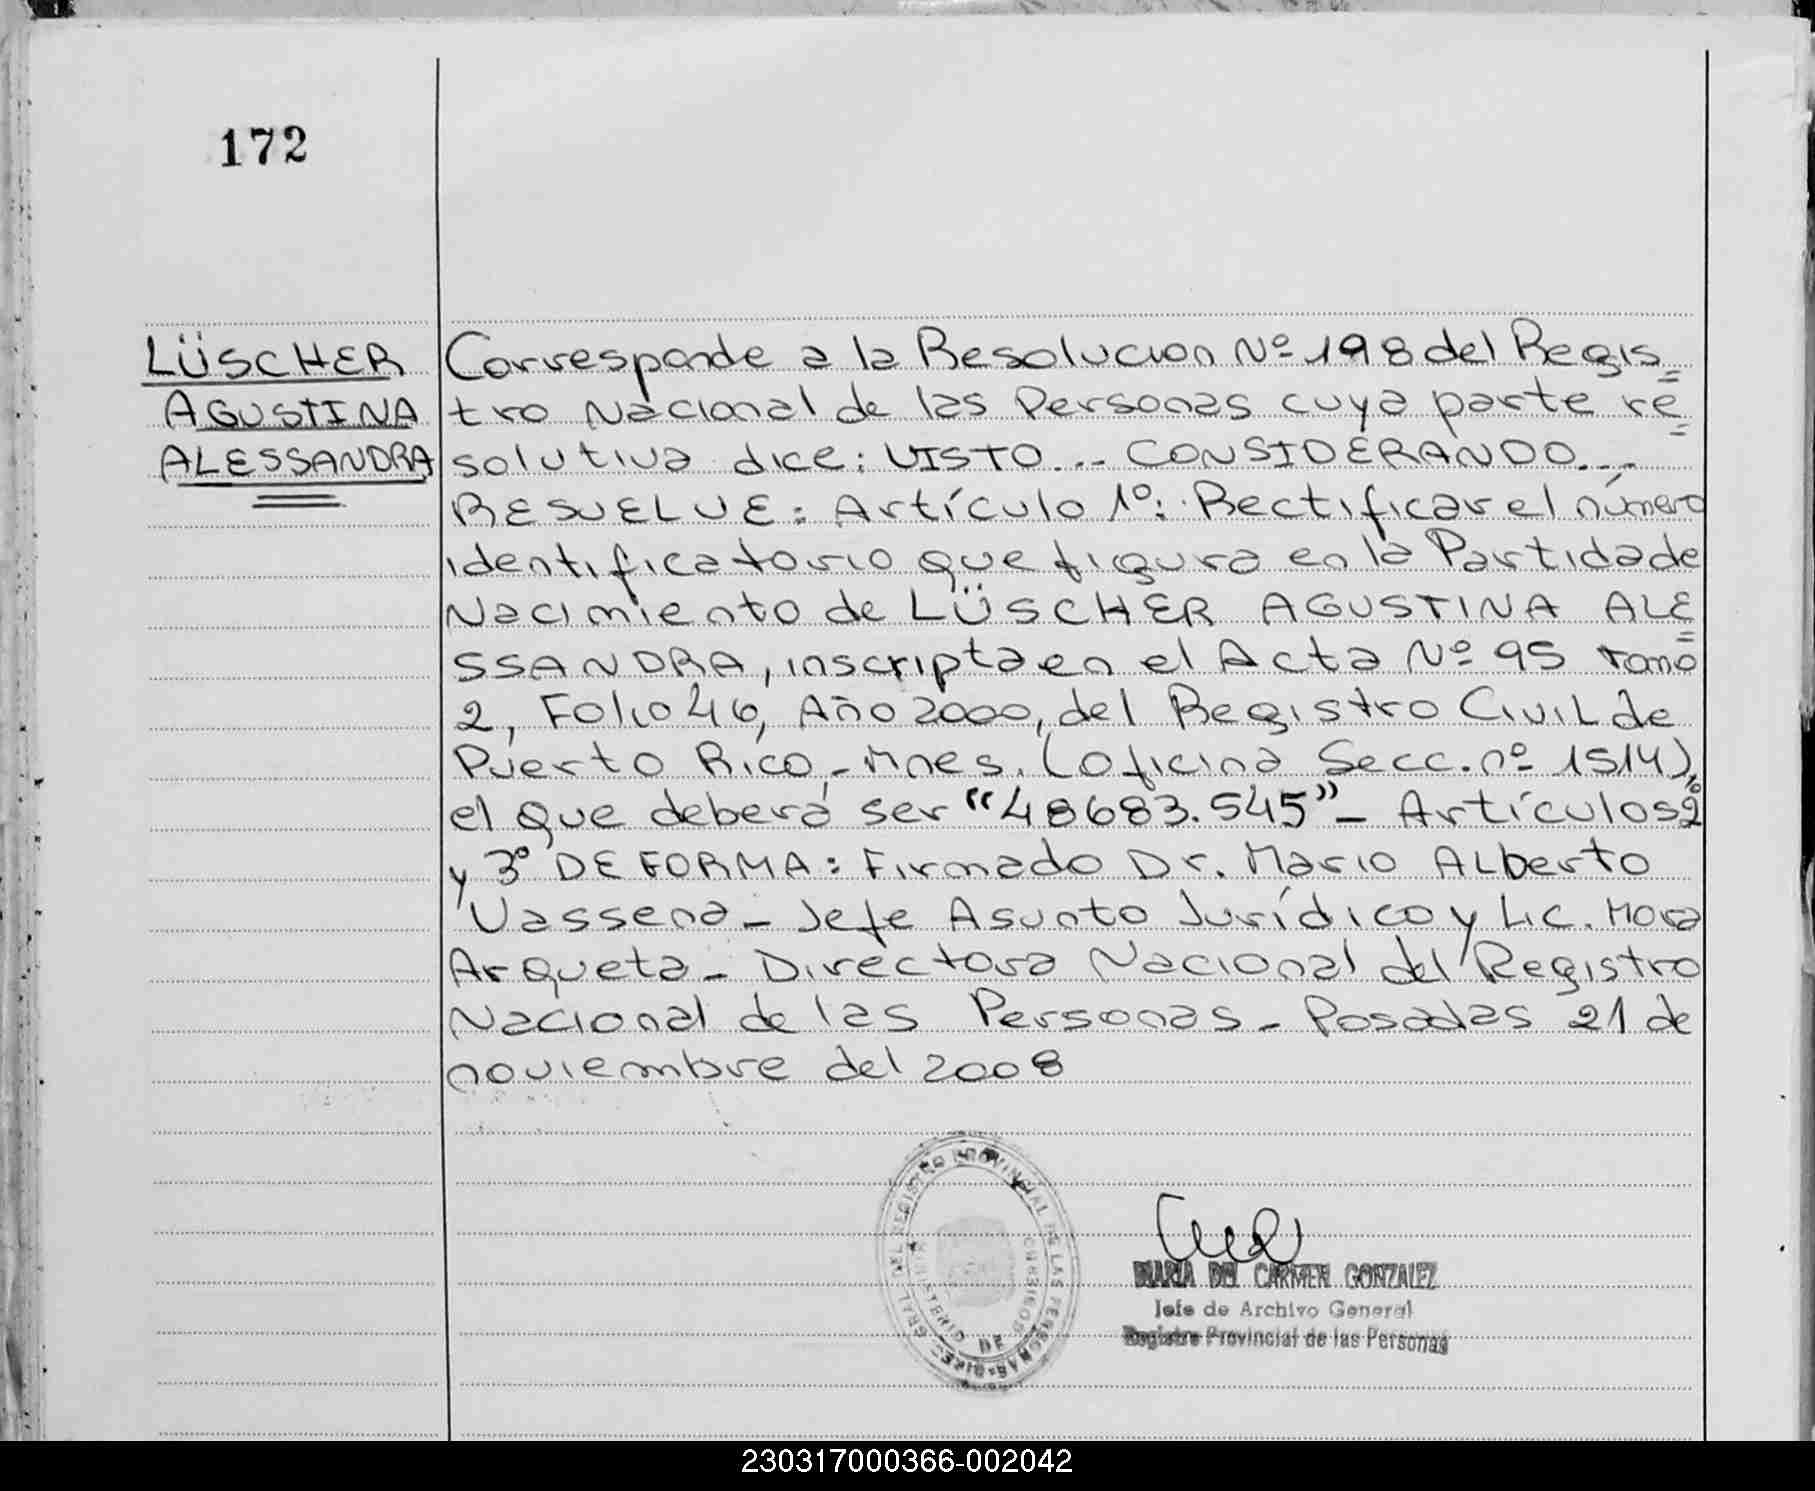 172
LÜSCHER
AGUSTINA
ALESSANDRA
Corresponde a la Resolucion Nº 198 del Regis=
tro Nacional de las Personas cuya parte re=
solutiva dice: VISTO... CONSIDERANDO...
RESUELVE: Artículo 1º: Rectificar el número
identificatorio que figura en la Partida de
Nacimiento de LÜSCHER AGUSTINA ALE=
SSANDRA, inscripta en el Acta Nº 95 Tomo
2, Folio 46, Año 2000, del Registro Civil de
Puerto Rico - Mnes. (oficina Secc. nº 1514),
el que deberá ser "48683.545" - Artículos 2º
y 3º DE FORMA: Firmado Dr. Mario Alberto
Vassena - Jefe Asunto Jurídico y Lic. Mora
Arqueta - Directora Nacional del Registro
Nacional de las Personas - Posadas 21 de
noviembre del 2008
MARIA DEL CARMEN GONZALEZ
Jefe de Archivo General
Registro Provincial de las Personas
GRAL DEL REGISTRO PROVINCIAL DE LAS PERSONAS
MINISTERIO DE
230317000366-002042